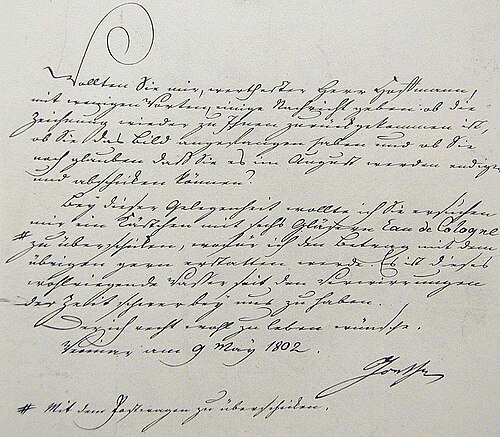 Wollten Sie mir, werthester Herr Hoffmann,
mit wenigen Worten, einige Nachricht geben: ob die
Zeichnung wieder zu Ihnen zurückgekommen ist,
ob Sie das Bild angefangen haben und ob Sie
noch glauben dass Sie es im August werden endigen
und abschicken können?
Bey dieser Gelegenheit wollte ich Sie ersuchen
mir ein Kästchen mit sechs Gläsern Eau de Cologne
# zu überschicken, wofür ich den Betrag mit dem
übrigen gern erstatten werde. Es ist dieses
wohlriechende Wasser seit den Verwirrungen
der Zeit schwer bey uns zu haben.
Der ich recht wohl zu leben wünsche.
Weimar am 9 May 1802.
Goethe
# Mit dem Postwagen zu überschicken.